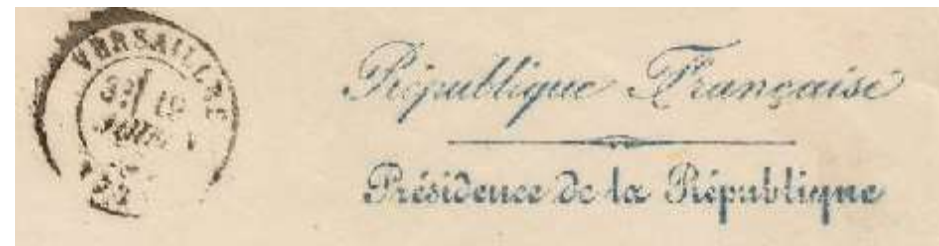 VERSAILLES
République Française
19
Présidence de la République